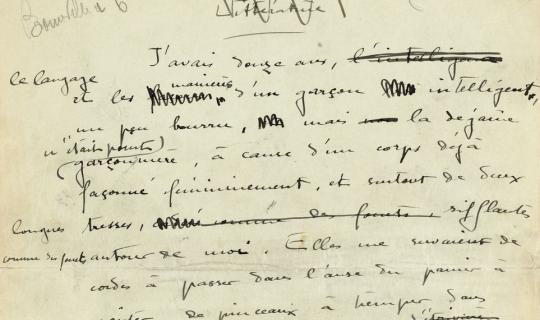 J'avais douze ans, l'intelligence
le langage
et les manières d'un garçon intelligent,
un peu bourru, mais non la dégaine
n'était point
garçonnière, à cause d'un corps déjà
façonné fémininement, et surtout de deux
longues tresses, comme des fouets, sifflantes
comme des fouets autour de moi. Elles me servaient de
cordes à passer dans l'anse du panier à
de pinceaux à tremper dans